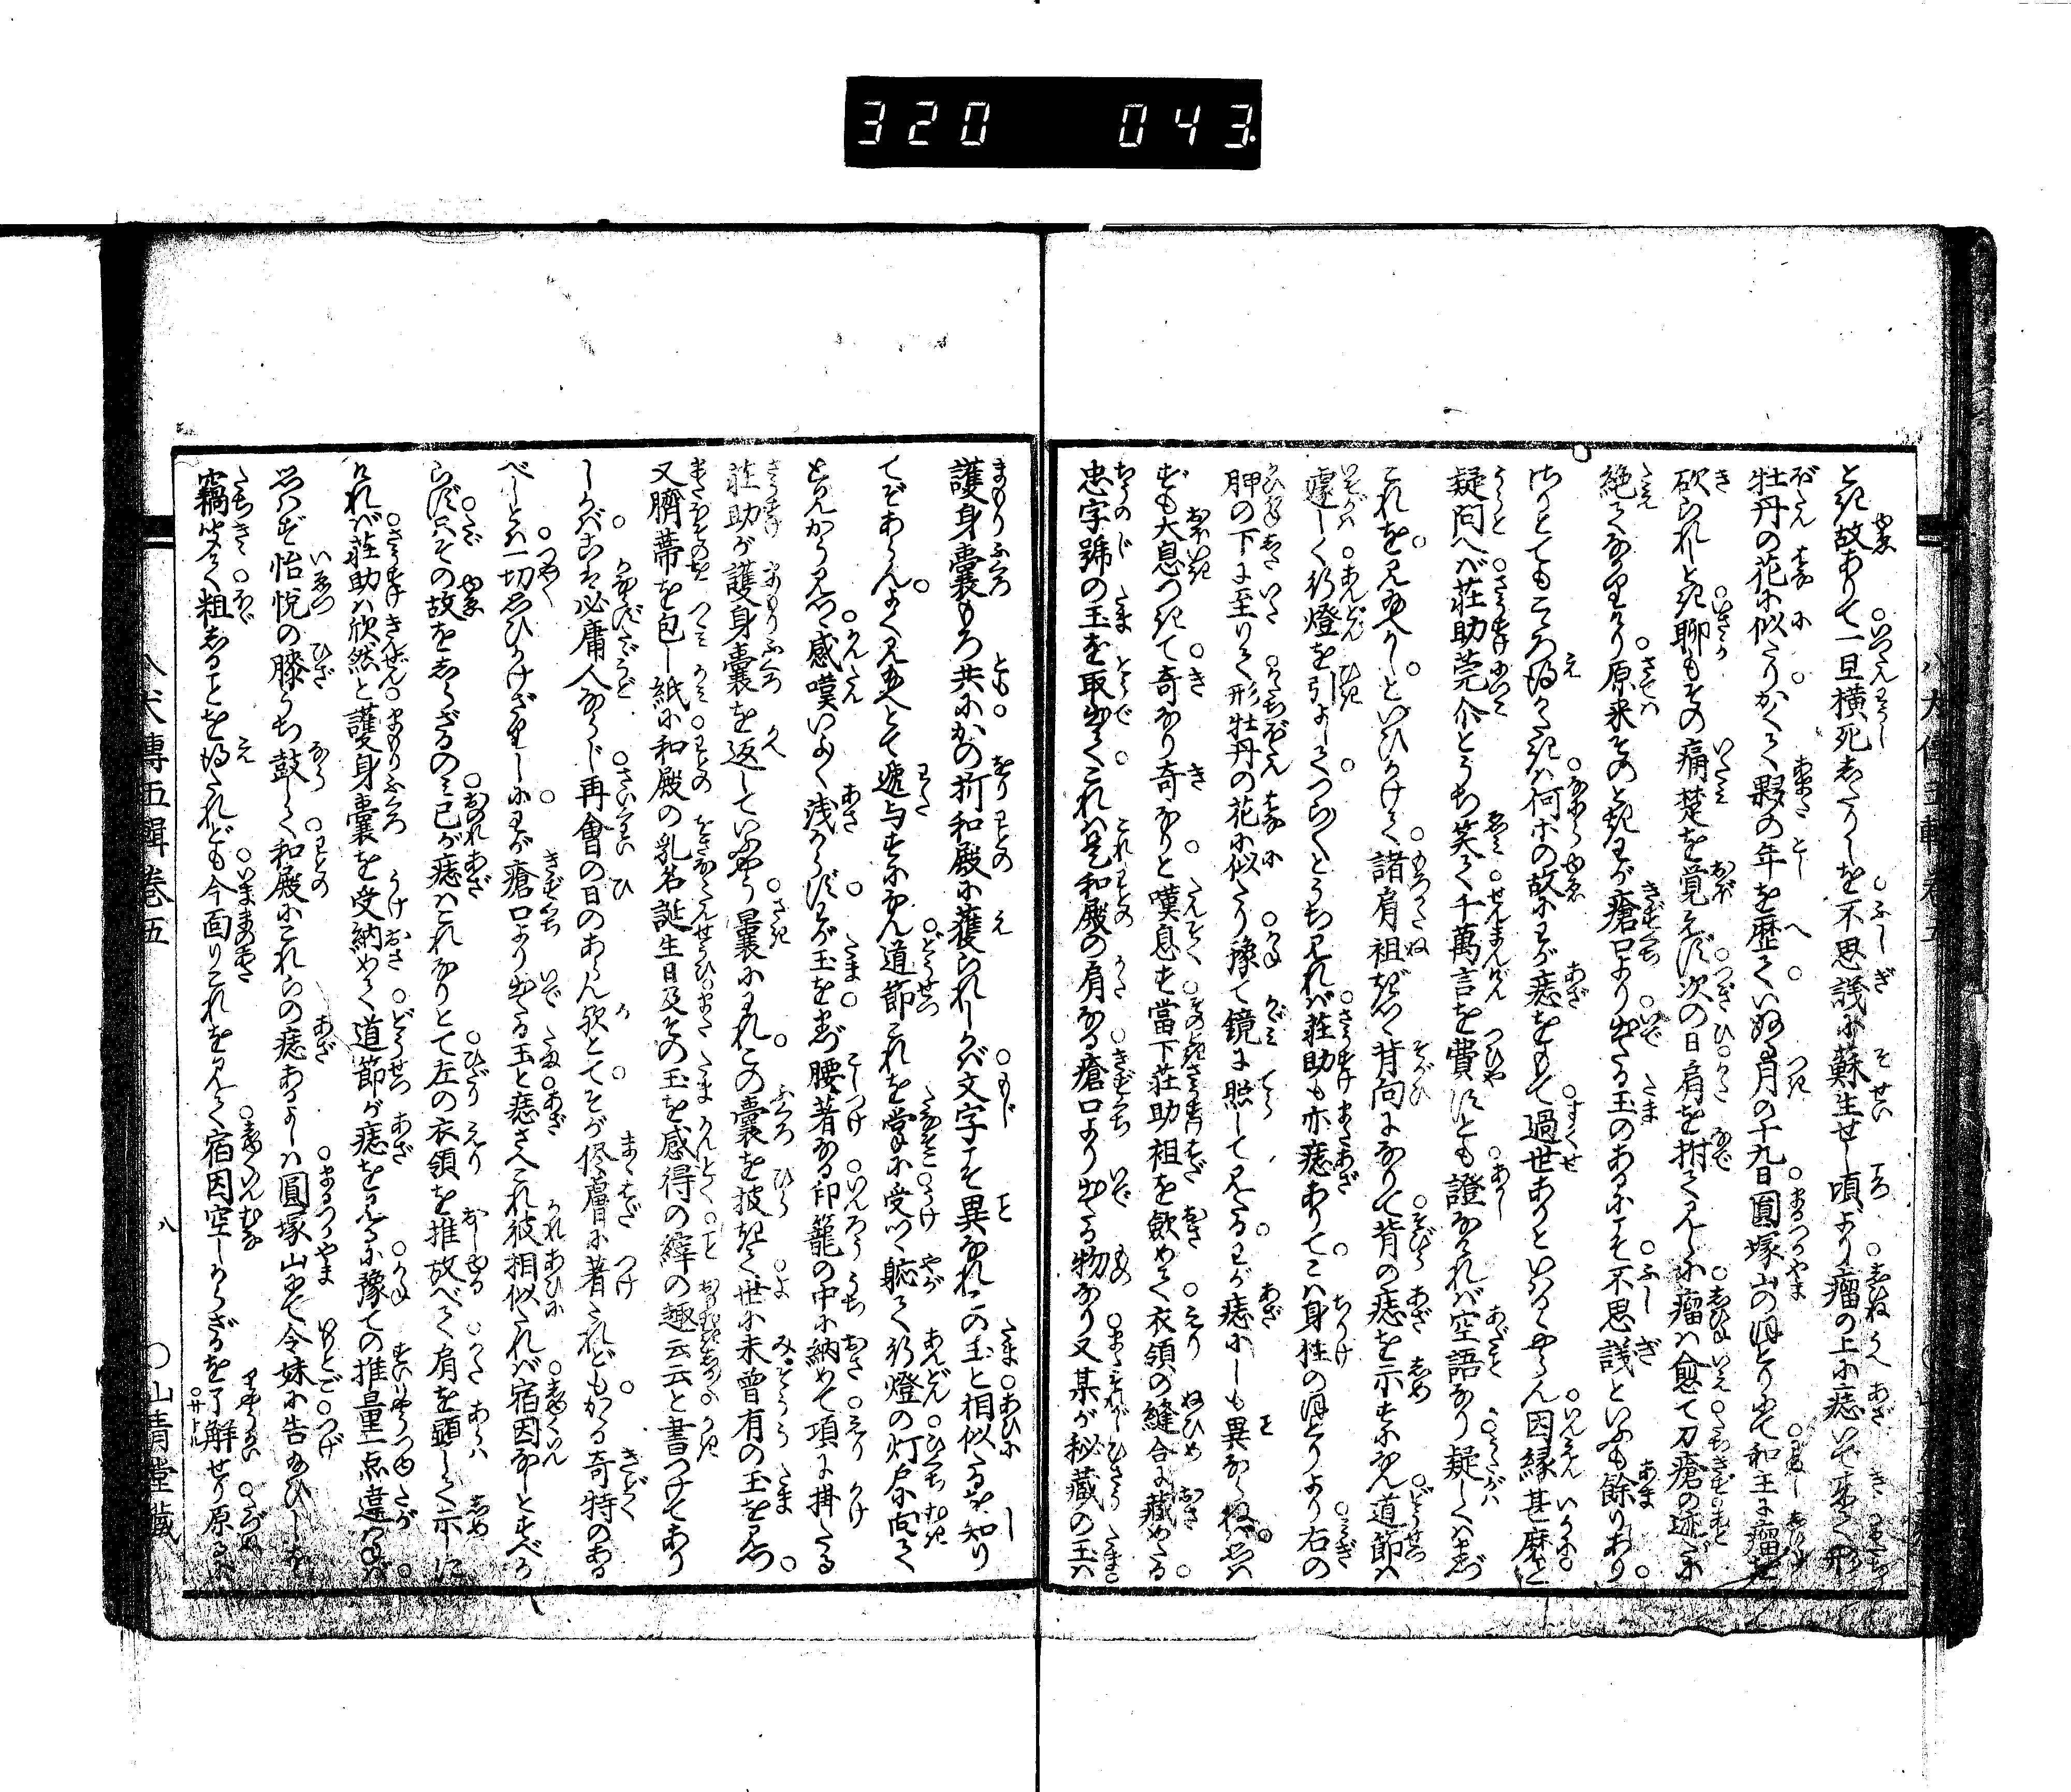 320 043
とき故ありて一旦横死したりしを不思議に蘇生せし頃より瘤の上に痣いで来て形
牡丹の花に似たりかくて夥の年を歴ていぬる月の十九日圓塚山のほとりにて和主に瘤を
砍られしとき聊もその痛楚を覚えず次の日肩を拊て見しに瘤は愈て刀瘡の迹だに
絶てなかりけり原来そのときわが瘡口より出たる玉のあるにこそ不思議といふも餘りあり
さりとてもこころ得がたきは何ホの故にわが痣をもて過世ありといはるるやらん因縁甚麼と
疑問へば荘助莞尓とうち笑て千萬言を費すとも證なければ空語なり疑しくはまづ
これを見給へかしといひかけて諸肩袒ぎつつ背向になりて背の痣を示すになん道節は
遽しく行燈を引よしてつらつらとうち見れば荘助も亦痣ありてこは身柱のほとりより右の
胛の下に至りて形牡丹の花に似たり豫て鏡に照して見たるわが痣にしも異ならねば思は
ずも大息つきて奇なり奇なりと嘆息す當下荘助袒を歛めて衣領の縫合に藏めたる
忠字號の玉を取出てこれは是和殿の肩なる瘡口より出たる物なり又某が秘藏の玉は
護身嚢もろ共にかの折和殿に獲られしかば文字こそ異なれこの玉と相似たるを知り
てぞあらんよく見給へとて遞与すになん道節これを掌に受つつ軈て行燈の灯戸に向て
とみかう見つつ感嘆いよいよ浅からずわが玉をまづ腰著なる印籠の中に納めて項に掛たる
荘助が護身嚢を返していふやう曩にわれこの嚢を披きて世に未曽有の玉を見つ
又臍帯を包し紙に和殿の乳名誕生日及その玉を感得の縡の趣云云と書つけてあり
しかばこは必庸人ならじ再會の日のあらん歟とてそが侭膚に著たれどもかかる奇特のある
べしとは一切思ひかけざりしにわが瘡口より出たる玉と痣さへこれ彼相似たれば宿因なしとすべか
らず只その故をしらざるのみ己が痣はこれなりとて左の衣領を推放べて肩を顕して示しに
ければ荘助は欣然と護身嚢を受納めて道節が痣を見るに豫ての推量一点違はねば
思はず怡悦の膝うち鼓して和殿にこれらの痣あるよしは圓塚山にて令妹に告給ひしを
竊聞て粗しることを得たれども今面りこれを見て宿因空しからざるを了解せり原るに
八犬傳五輯巻五
八
○山青堂藏